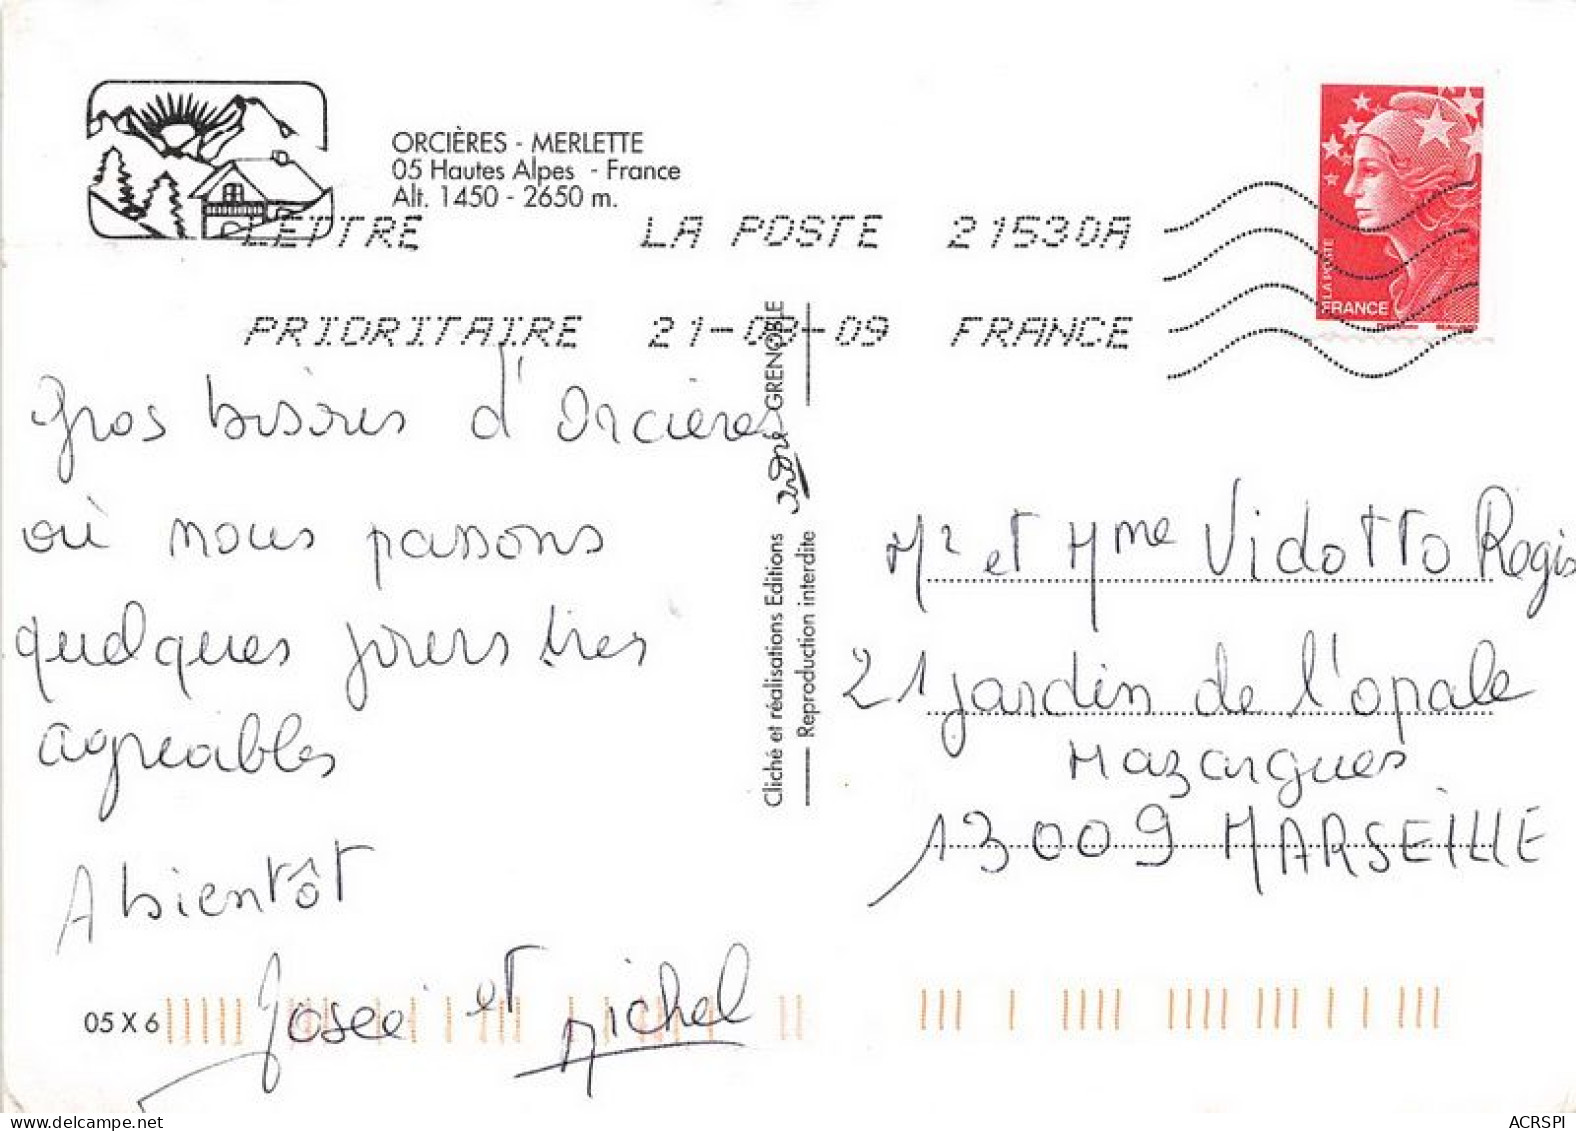 ORCIÈRES - MERLETTE
05 Hautes Alpes - France
Alt. 1450 - 2650 m.
LETTRE LA POSTE 21530A
PRIORITAIRE 21-08-09 FRANCE
LA POSTE
FRANCE
Gros bisous d'Orcières
où nous passons
quelques jours très
agréables
A bientôt
Josée et Michel
05 X 6
Cliché et réalisations Editions André GRENOBLE
Reproduction interdite
Mr et Mme Vidotto Regis
21 jardin de l'opale
Mazargues
13009 MARSEILLE
ACRSPI